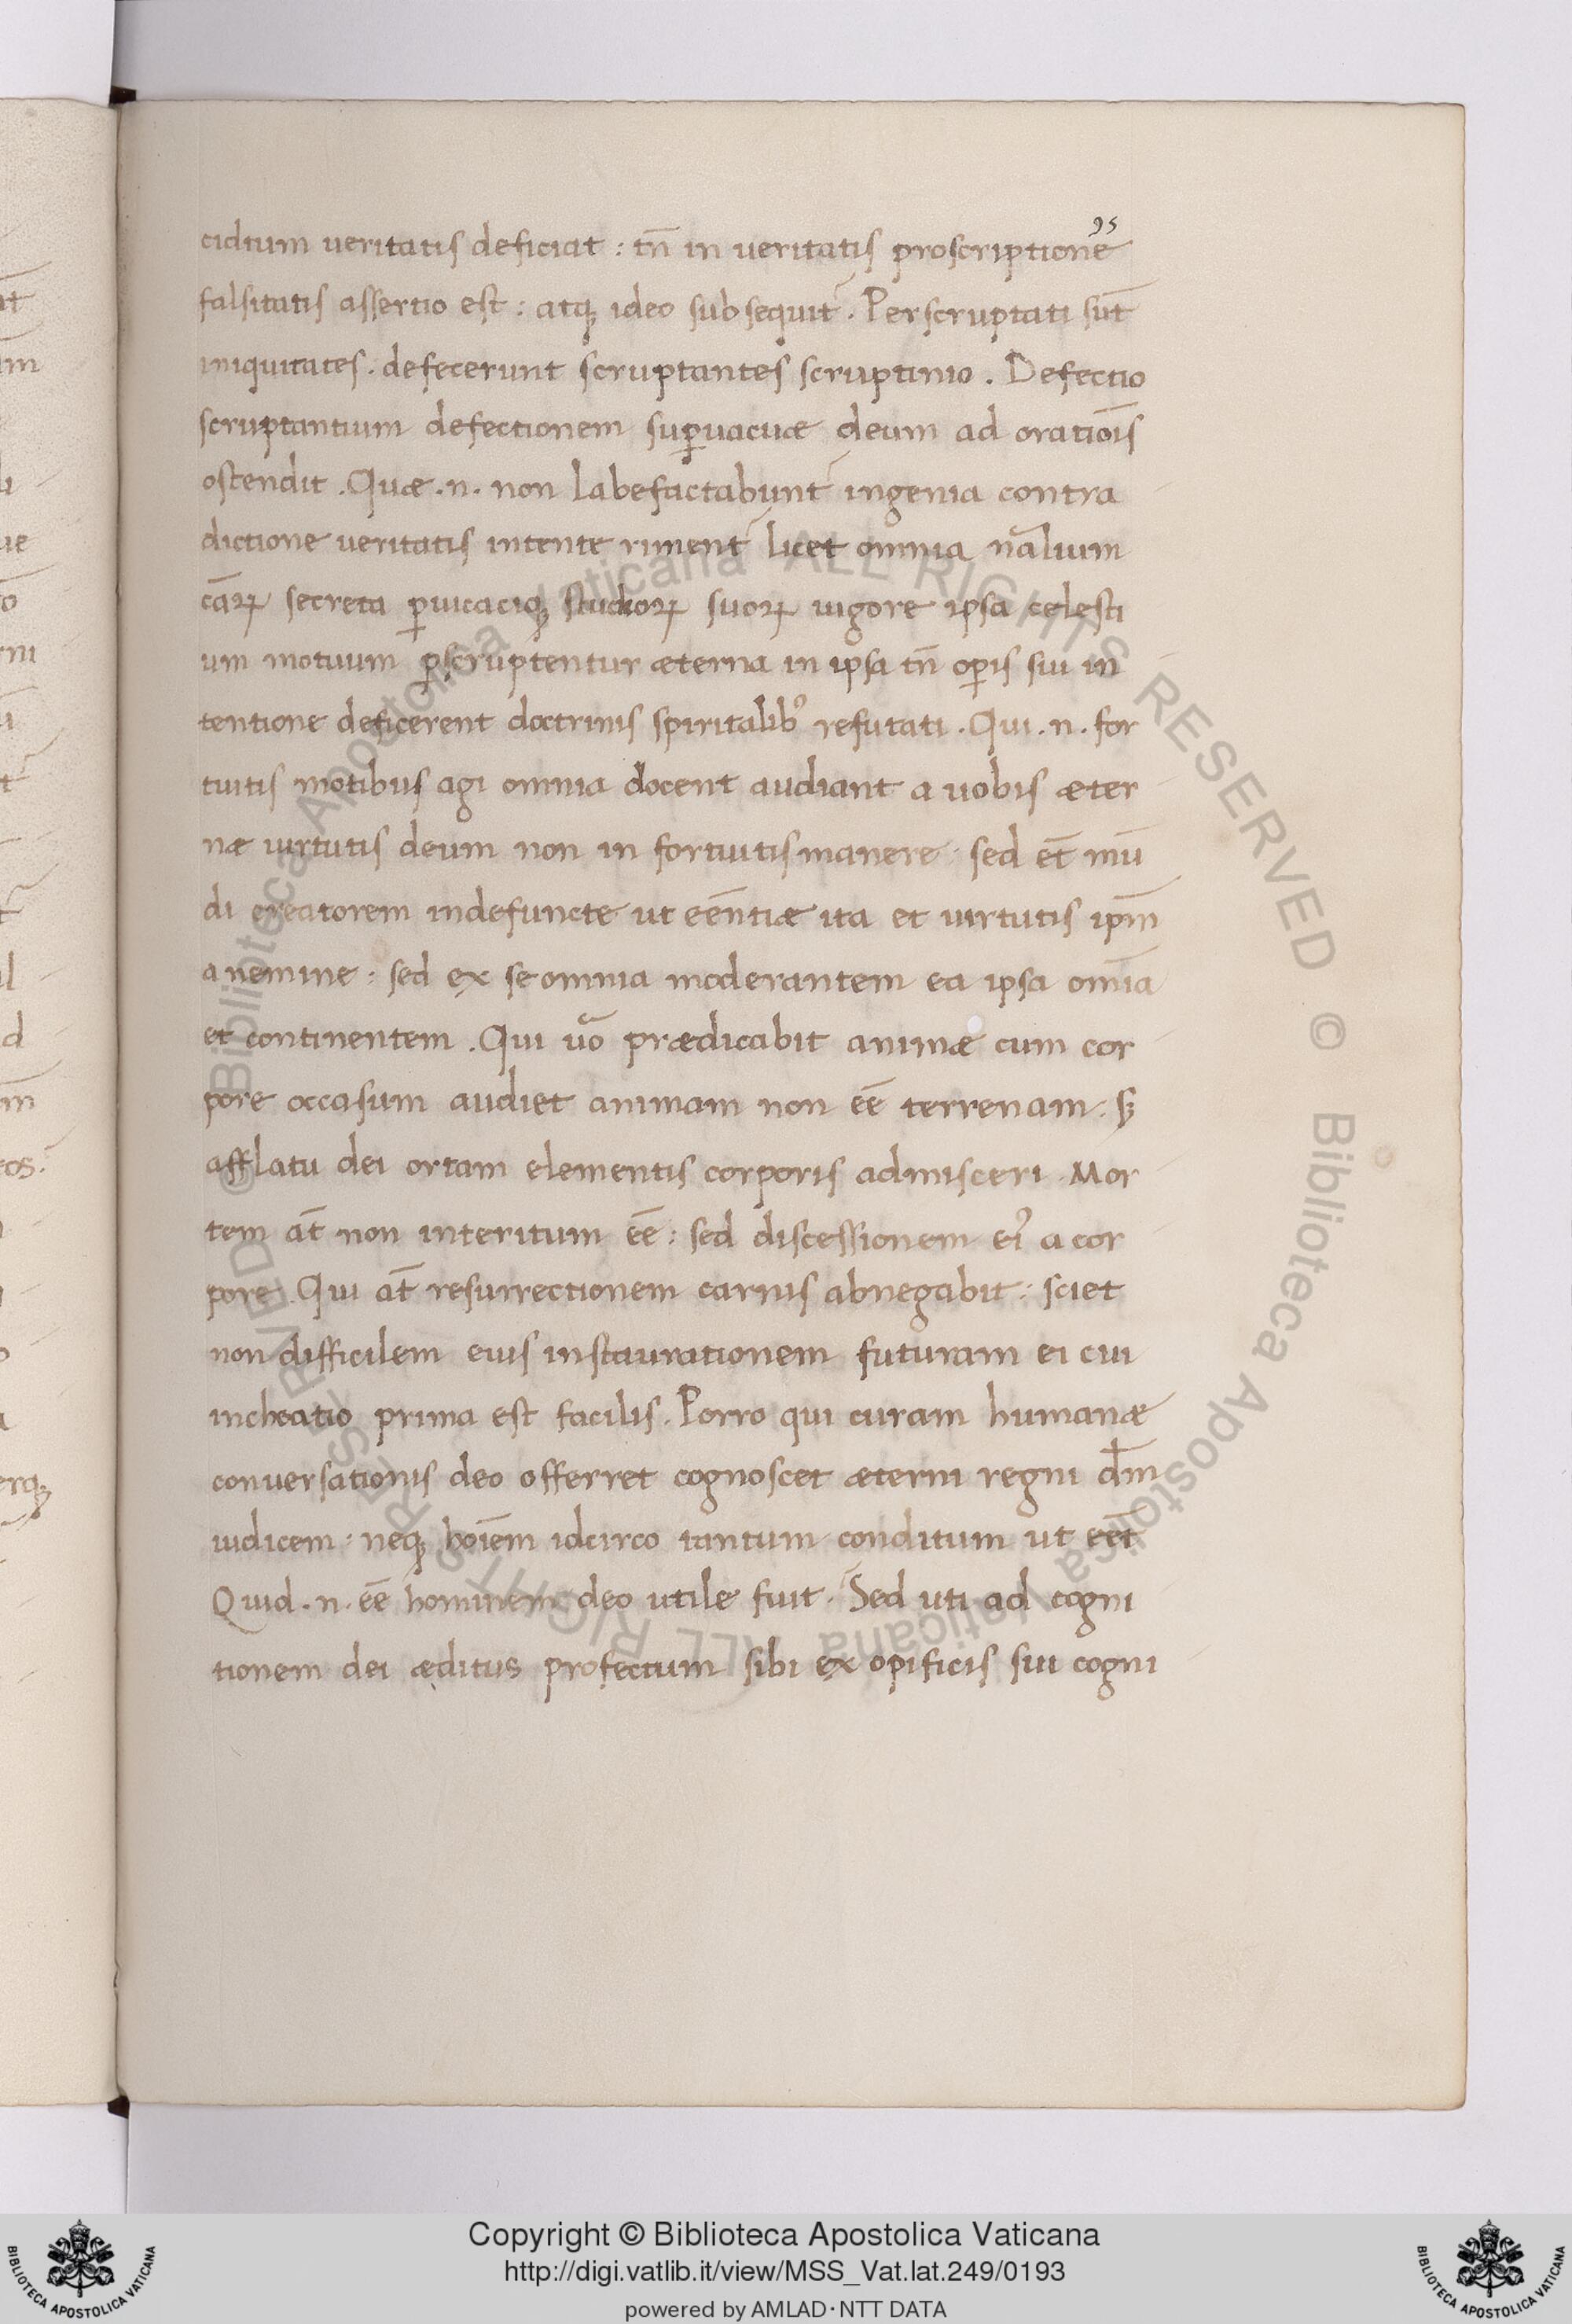 95
cidium ueritatis deficiat : tn̄ in ueritatis proscriptione
falsitatis assertio est : atq; ideo subsequit᷑ . Perscruptati sūt
iniquitates . defecerunt scruptantes scruptinio . Defectio
scruptantium defectionem suꝑuacuæ deum ad oratiōis
ostendit . Quæ .n. non labefactabunt᷑ ingenia contra
dictione ueritatis intente riment᷑ licet omnia nāлium
cāꝝ secreta ꝑuicaciq; studioꝝ suoꝝ uigore ipsa celesti
um motuum ꝑscruptentur æterna in ipsa tn̄ oꝑis sui in
tentione deficerent doctrinis spiritalibꝰ refutati . Qui .n. for
tuitis motibus agi omnia docent audiant a uobis æter
næ uirtutis deum non in fortuitis manere : sed et̄ mū
di creatorem indefuncte ut eēntiæ ita et uirtutis ipm̄
a nemine : sed ex se omnia moderantem ea ipsa omīa
et continentem . Qui uō prædicabit animæ cum cor
pore occasum audiet animam non eē terrenam . s;
afflatu dei ortam elementis corporis admisceri . Mor
tem at̄ non interitum eē : sed discessionem eiꝰ a cor
pore . Qui at̄ resurrectionem carnis abnegabit : sciet
non difficilem eius instaurationem futuram ei cui
inchoatio prima est facilis . Porro qui curam humanæ
conuersationis deo offerret cognoscet æterni regni dm̄
iudicem : neq; hoīem idcirco tantum conditum ut eēt
Quid .n. eē hominem deo utile fuit . Sed uti ad cogni
tionem dei æditus profectum sibi ex opificis sui cogni
© Biblioteca Apostolica Vaticana ALL RIGHTS RESERVED © Biblioteca Apostolica Vaticana ALL RIGHTS RESERVED
BIBLIOTECA APOSTOLICA VATICANA
Copyright © Biblioteca Apostolica Vaticana
http://digi.vatlib.it/view/MSS_Vat.lat.249/0193
powered by AMLAD·NTT DATA
BIBLIOTECA APOSTOLICA VATICANA